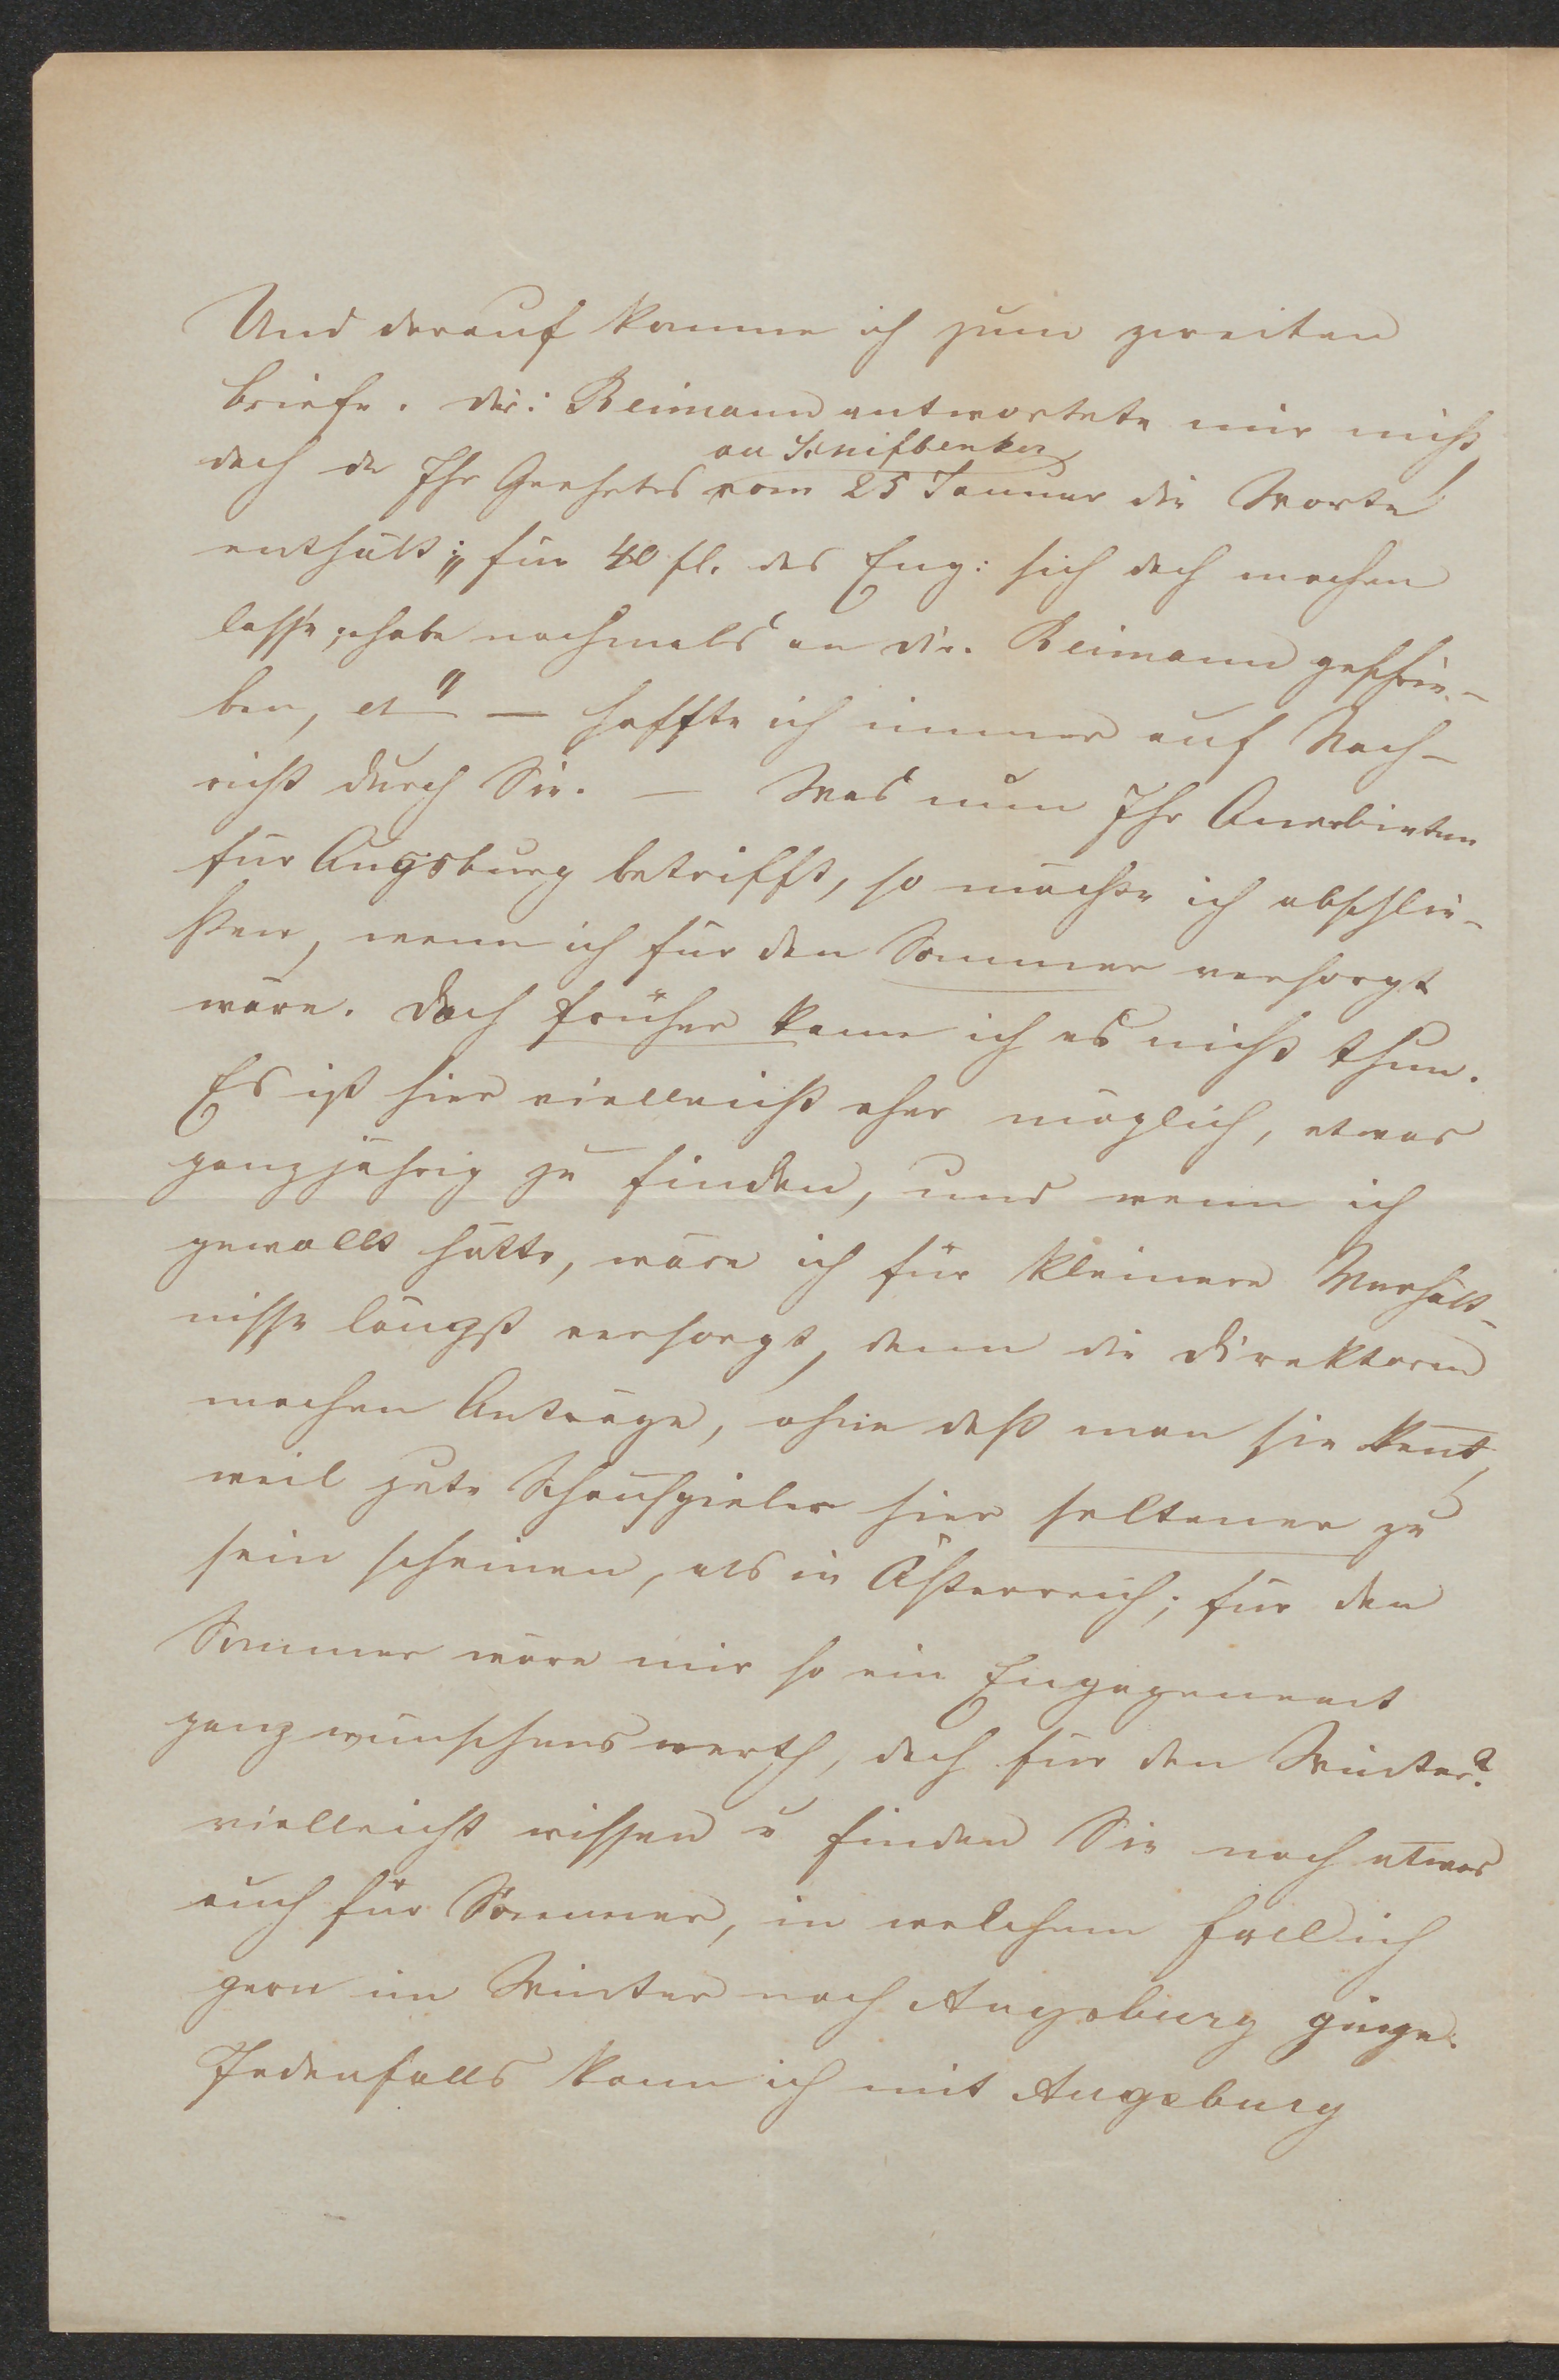 Und darauf komme ich zum zweiten
Briefe. Dir: Reimann antwortete mir nicht,
an Schifbenker
doch da Ihr Geehrtes vom 25 Januar die Worte
enthält: „für 40 fl. das Eng: sich doch machen
lasse; habe nochmals an Dir. Reimann geschrie-
ben, et" — hoffte ich immer auf Nach-
richt durch Sie. — Was nun Ihr Anerbieten
für Augsburg betrifft, so möchte ich abschlie-
ßen, wenn ich für den Sommer versorgt
wäre. Doch früher kann ich es nicht thun.
Es ist hier vielleicht eher möglich, etwas
ganzjährig zu finden, und wenn ich
gewollt hätte, wäre ich für kleinere Verhält-
nisse längst versorgt, denn die Direktoren
machen Anträge, ohne daß man sie kent,
weil gute Schauspieler hier seltener zu
sein scheinen, als in Österreich; für den
Sommer wäre mir so ein Engagement
ganz wünschenswerth, doch für den Winter?
vielleicht wissen u finden Sie noch etwas
auch für Sommer, in welchem Fall ich
gern im Winter nach Augsburg ginge.
Jedenfalls kann ich mit Augsburg